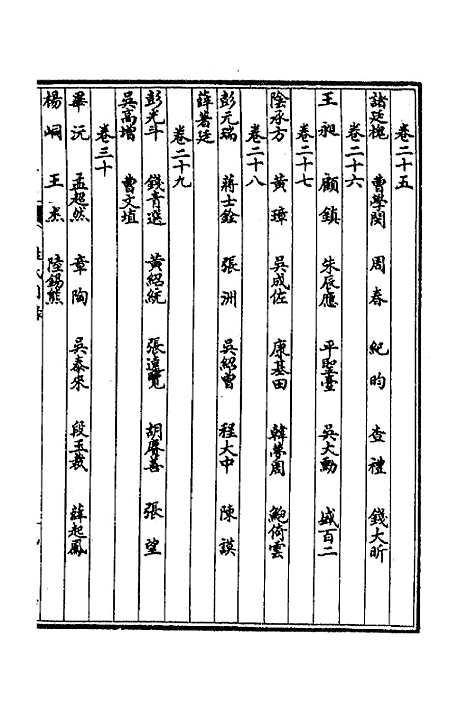 卷二十五
諸廷槐 曹學閔 周春 紀昀 查禮 錢大昕
卷二十六
王昶 顧鎮 朱辰應 平聖臺 吳大勳 盛百二
卷二十七
陰承方 黃璋 吳成佐 康基田 韓崇周 鮑倚雲
卷二十八
彭元瑞 蔣士銓 張洲 吳紹曾 程大中 陳謨
薛著廷
卷二十九
彭光斗 錢青選 黃紹統 張遠覽 胡賡善 張望
吳高增 曹文埴
卷三十
畢沅 孟超然 章陶 吳泰來 段玉裁 薛起鳳
楊峒 王杰 陸錫熊